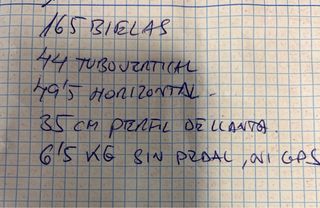 165 BIELAS
44 TUBO VERTICAL
49'5 HORIZONTAL.
35 CM PERFIL DE LLANTA.
6'5 KG SIN PEDAL, NI GPS